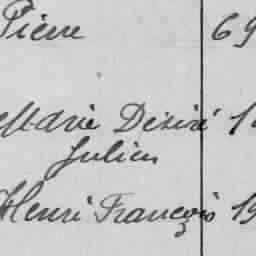 Pierre 69
Marie Désiré 1
Julien
Henri François 19